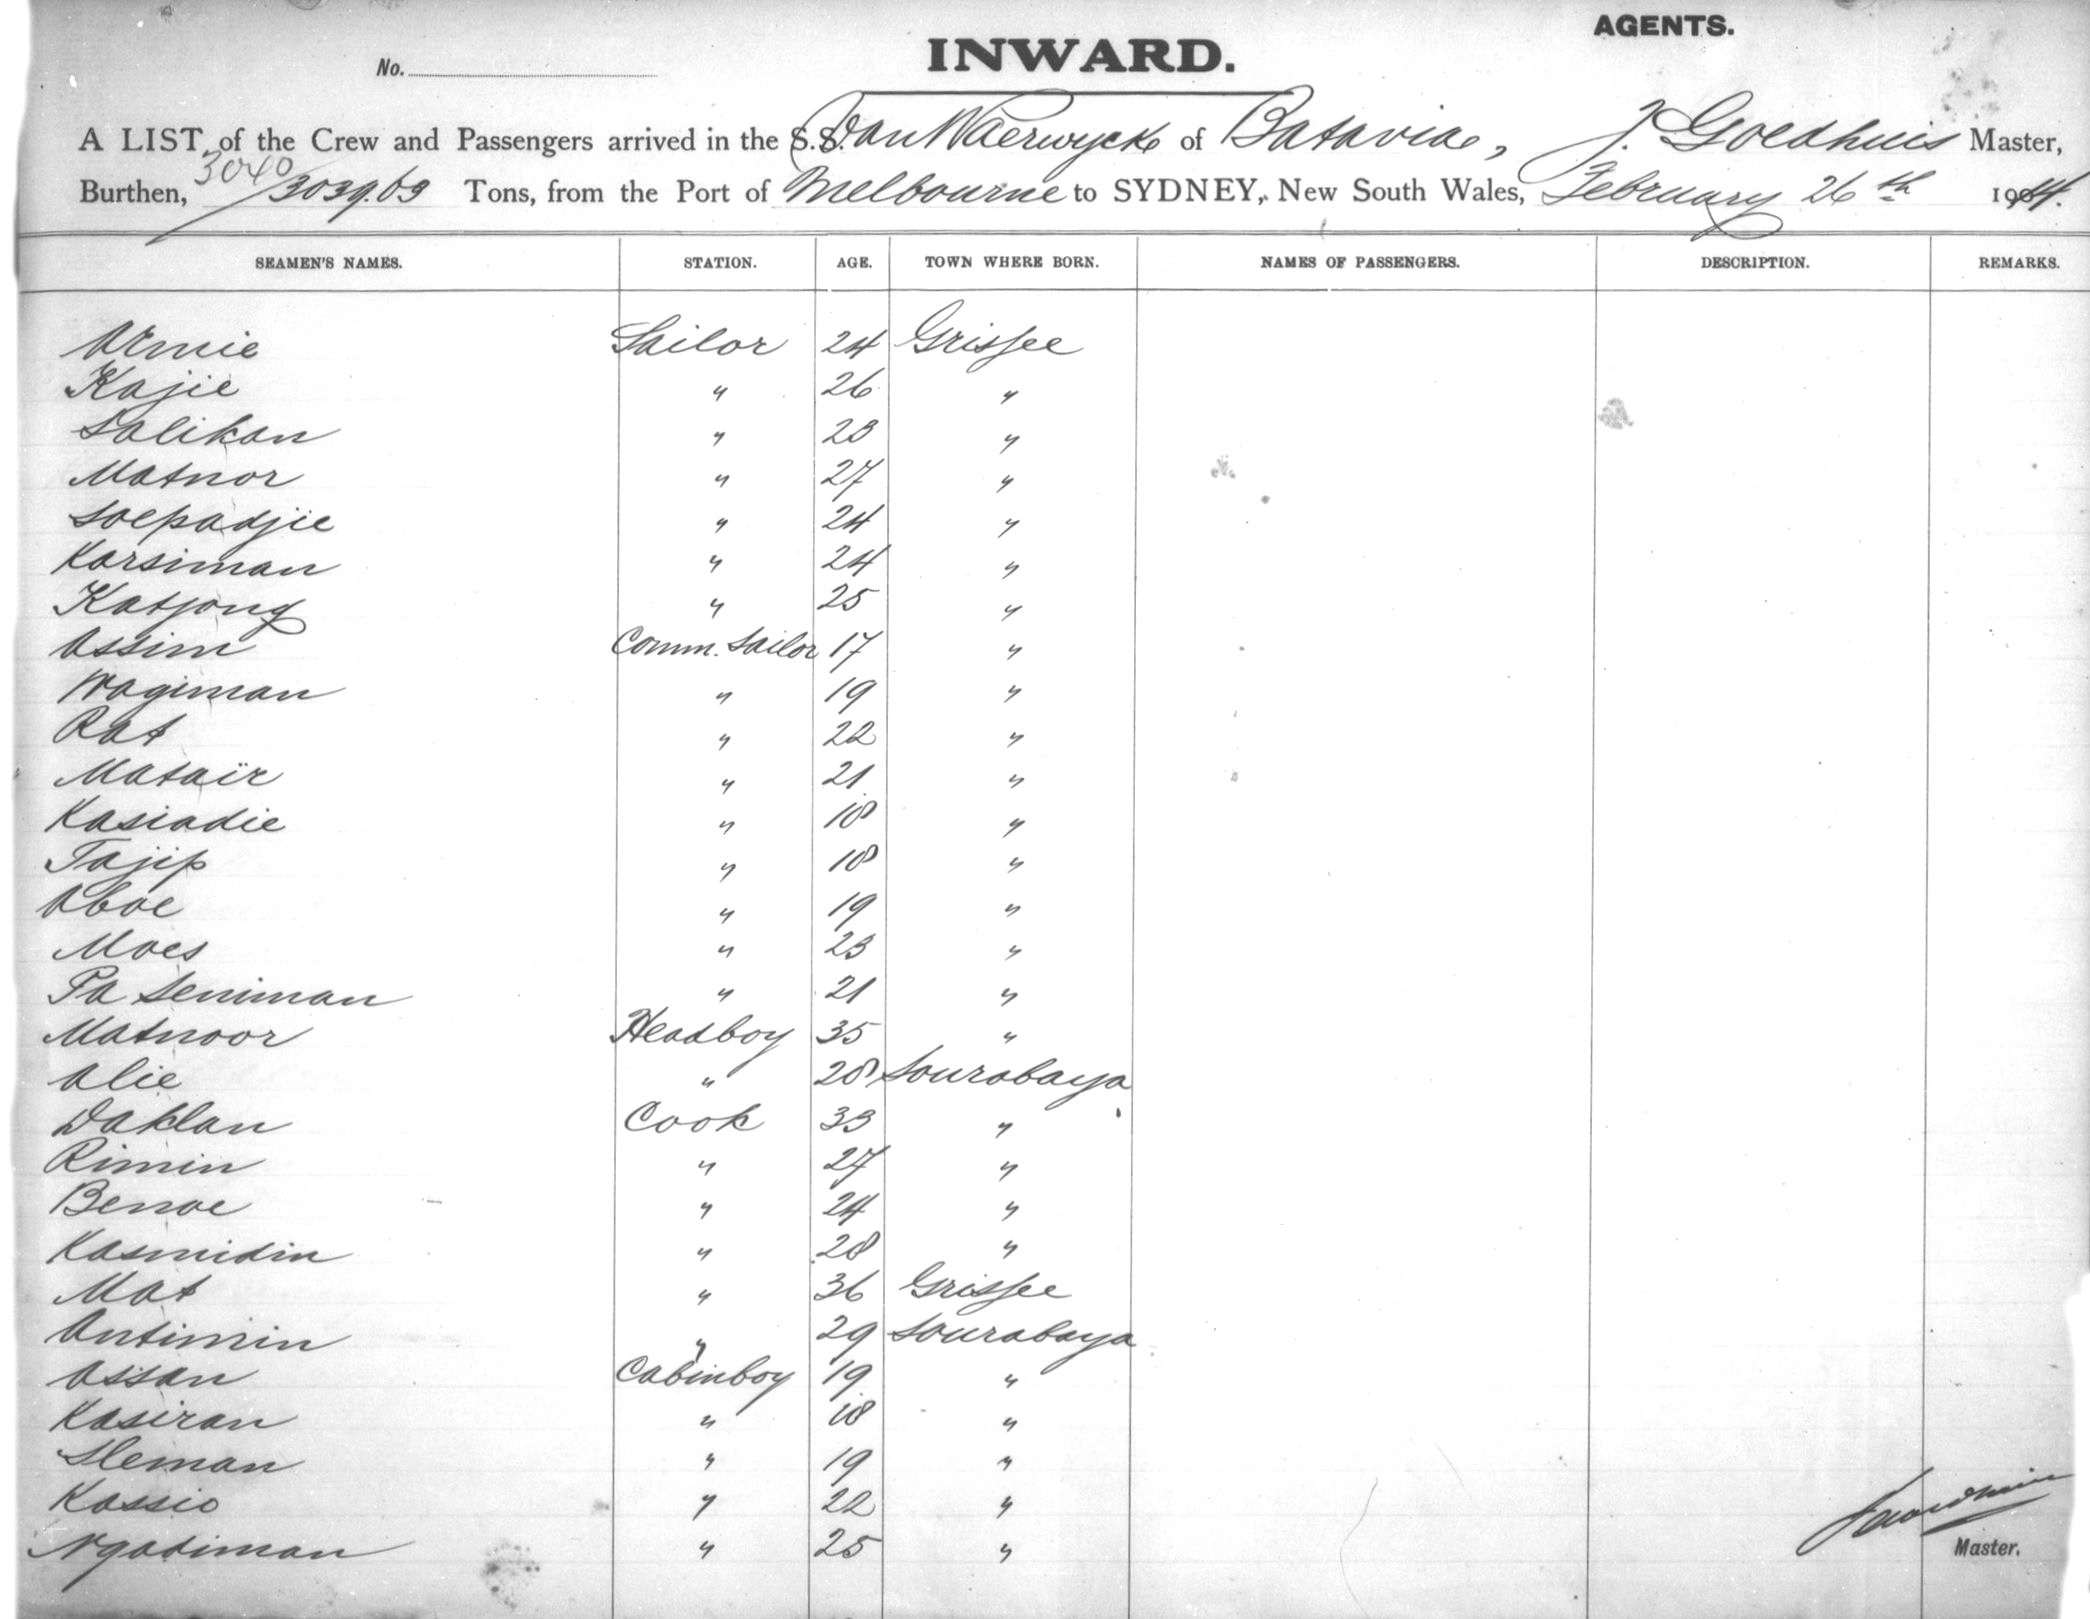 AGENTS.
No. INWARD.
A LIST of the Crew and Passengers arrived in the S.S. Van Waerwyck of Batavia, J. Goedhuis Master,
3040
Burthen, 3039.63 Tons, from the Port of Melbourne to SYDNEY, New South Wales, February 26th 1914.
SEAMEN'S NAMES. STATION. AGE. TOWN WHERE BORN. NAMES OF PASSENGERS. DESCRIPTION. REMARKS.
Sailor 24 Grissee
Kajie " 26 "
Salikan " 23 "
Matnor " 27 "
Soepadjie " 24 "
Karsiman " 24 "
Katjong " 25 "
Assim Comm. Sailor 17 "
Wagiman " 19 "
Rat " 22 "
Mataïr " 21 "
Kasiadie " 18 "
Tajip " 18 "
Aboe " 19 "
Moes " 23 "
Pa Seniman " 21 "
Matnoor Headboy 35 "
Alie " 28 Sourabaya
Daklan Cook 33 "
Rimin " 27 "
Benoe " 24 "
Kasmidin " 28 "
Mat " 36 Grissee
Antimin " 29 Sourabaya
Assan Cabinboy 19 "
Kasiran " 18 "
Sleman " 19 "
Kassio " 22 "
Ngadiman " 25 "
Master.